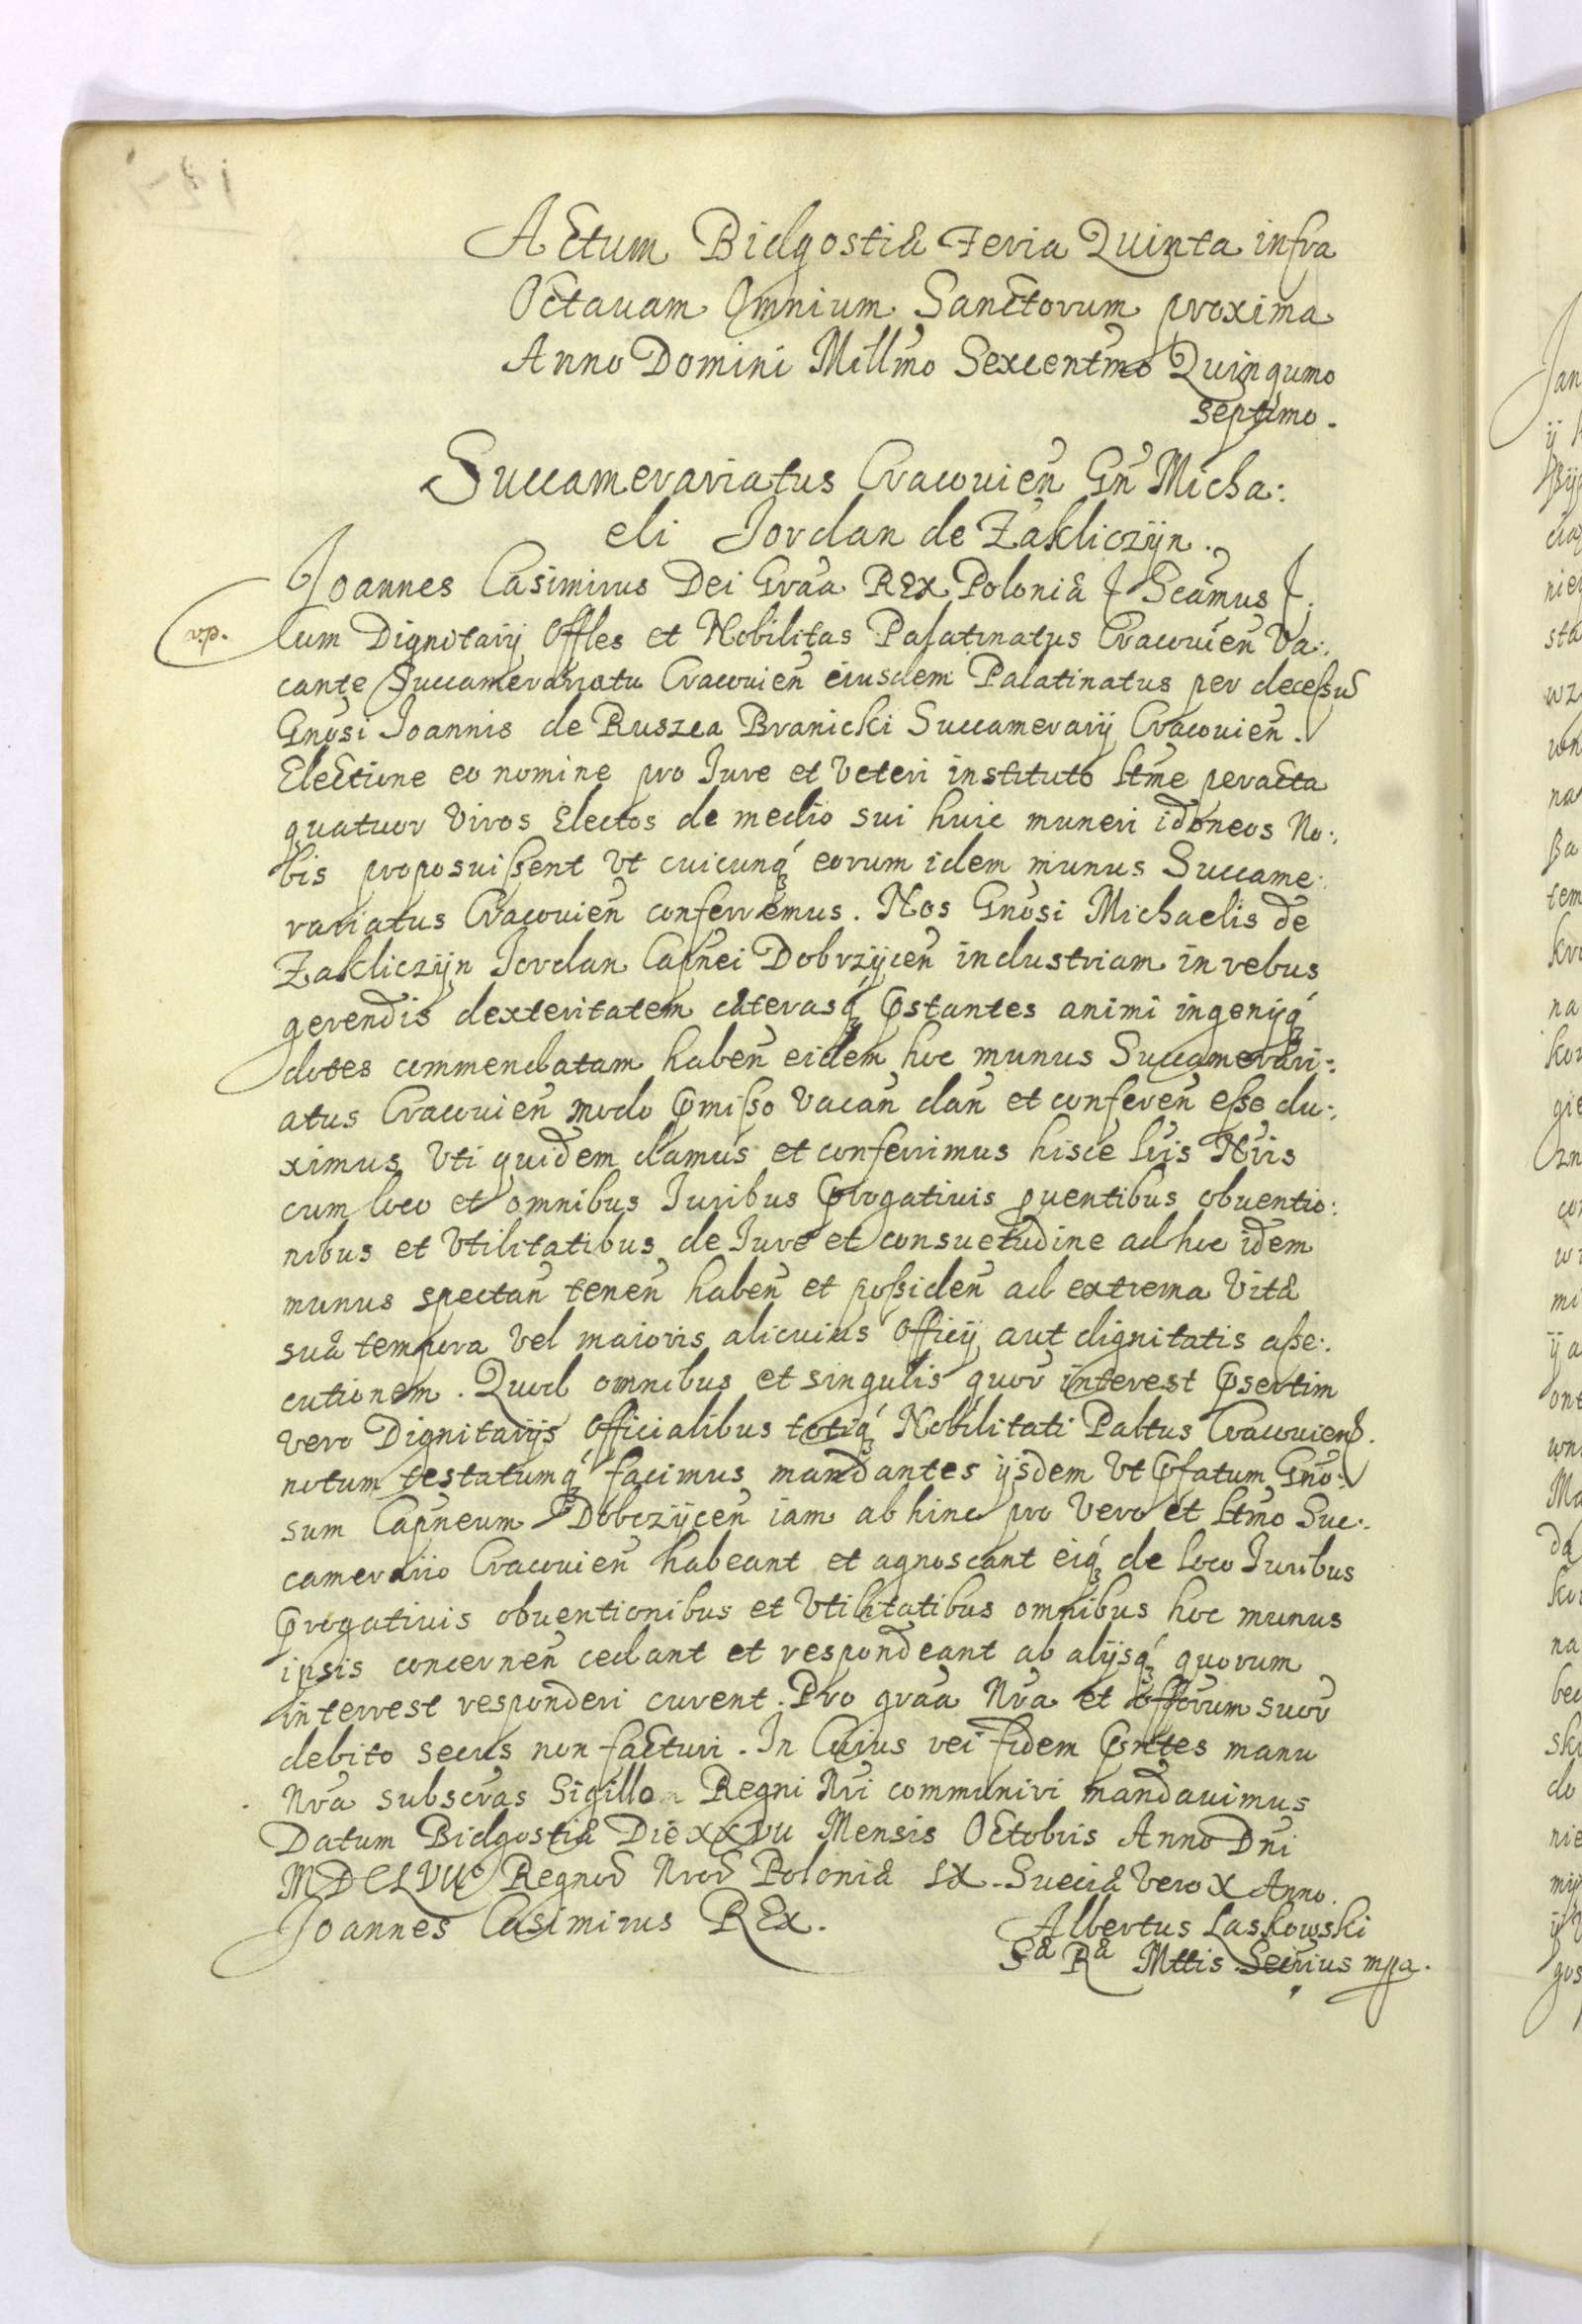 Actum Bidgostiæ Feria Quinta infra
Octauam Omnium Sanctorum proxima
Anno Domini Millmo Sexcentmo Quinqumo
septimo.
Succamerariatus Cracouien̄ Gn̄ Micha:
eli Jordan de Zakliczÿn.
Joannes Casimirus Dei Graa REX Poloniæ Sc̄amus
v.p.
Cum Dignitarij Offles et Nobilitas Palatinatus Cracouien̄ Va:
cante Succamerariatu Cracouien̄ eiusdem Palatinatus per deceßu̅
Gnosi Joannis de Ruszca Branicki Succamerarij Cracouien̄.
Electione eo nomine pro Jure et Veteri instituto ltme peracta
quatuor Viros Electos de medio sui huic muneri idoneos No:
bis proposuißent Vt cuicunq́ꝫ eorum idem munus Succame:
rariatus Cracouien̄ conferremus. Nos Gnosi Michaelis de
Zakliczÿn Jordan Capnei Dobrzÿcen̄ industriam in rebus
gerendis dexteritatem cæterasq́ꝫ p̄stantes animi ingenijq́ꝫ
dotes commendatam haben̄ eidem hoc munus Succamerari:
atus Cracouien̄ modo p̄mißo Vacan̄ dan̄ et conferen̄ eße du:
ximus Vti quidem damus et conferrimus hisce lris Nris
cum loco et omnibus Juribus p̄rogatiuis puentibus obuentio:
nibus et Vtilitatibus de Jure et consuetudine ad hoc idem
munus spectan̄ tenen̄ haben̄ et poßiden̄ ad extrema Vitæ
suæ tempora Vel maioris alicuius officij aut dignitatis aße:
cutionem. Quod omnibus et singulis quor̄ interest p̄sertim
vero Dignitarijs Officialibus totiq́ꝫ Nobilitati Paltus Cracouiens.
notum testatumq́ꝫ facimus mandantes ijsdem Vt p̄fatum Gno:
sum Capneum Dobczÿcen̄ iam ab hinc pro Vero et ltmo Suc:
camerario Cracouien̄ habeant et agnoscant eiq́ꝫ de loco Juribus
p̄rogatiuis obuentionibus et Vtilitatibus omnibus hoc munus
ipsis concernen̄ cedant et respondeant ab alijsq́ꝫ quorum
interrest responderi curent. Pro graa Nra et offorum suor̄
debito secus non facturi. In Cuius rei fidem p̄ntes manu
Nra subscras Sigillo Regni Nri communiri mandauimus
Datum Bidgostiæ Die XXVII Mensis Octobris Anno Dn̄i
MDCLVII Regnor̄ Nror̄ Poloniæ IX. Sueciæ Vero X Anno.
Joannes Casimirus REx.
Albertus Laskowski
Sæ Ræ Mttis Secrius mppa.